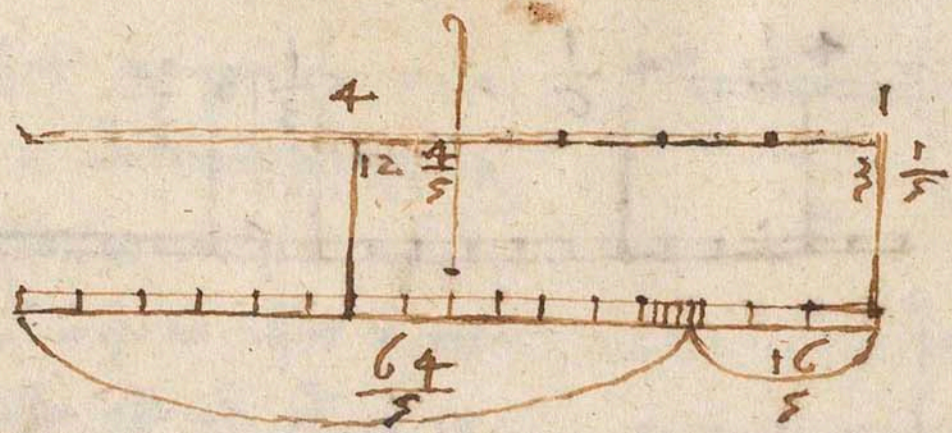 4 1
12 4/5 3 1/5
64/5 16/5